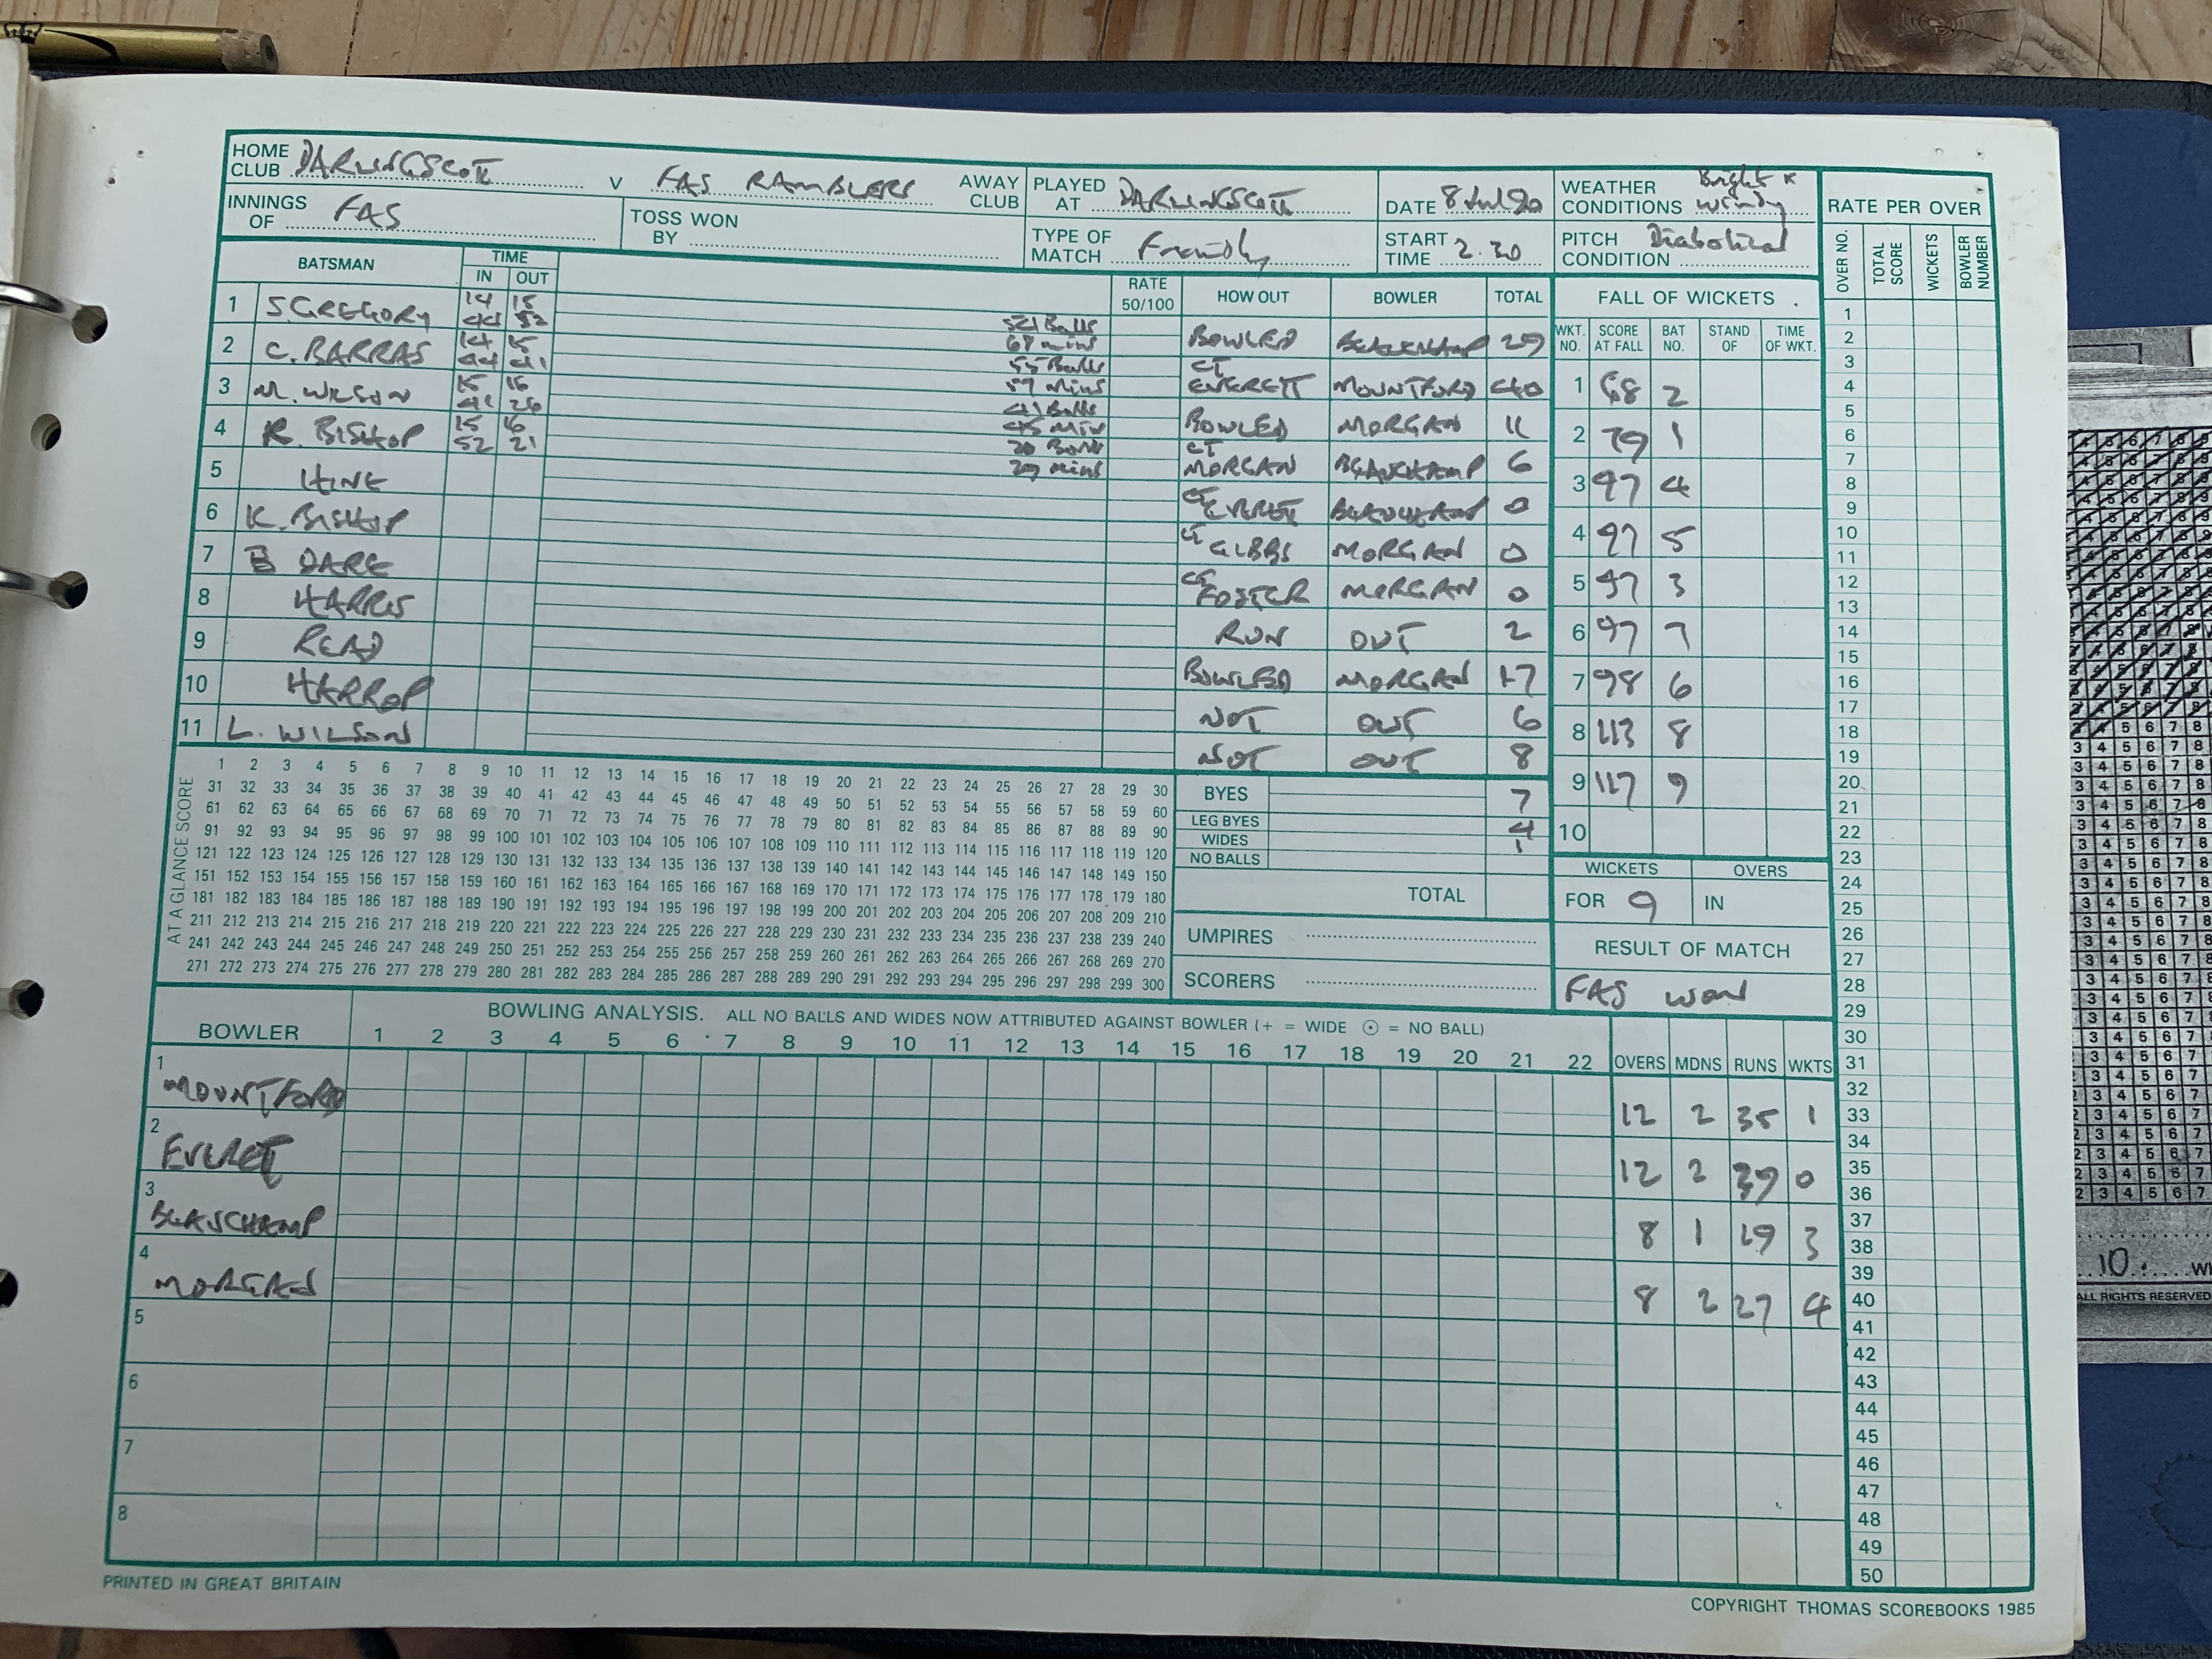 HOME CLUB DARLINGSCOTT V FAS RAMBLERS AWAY CLUB PLAYED AT DARLINGSCOTT DATE 8 Jul 90 WEATHER CONDITIONS Bright & Windy RATE PER OVER
INNINGS OF FAS TOSS WON BY TYPE OF MATCH Friendly START TIME 2.30 PITCH CONDITION Diabolical
OVER NO. TOTAL SCORE WICKETS BOWLER NUMBER
BATSMAN TIME IN OUT RATE 50/100 HOW OUT BOWLER TOTAL
1 S. GREGORY 14 44 15 52 68 mins BOWLED BEAUCHAMP 29
2 C. BARRAS 14 44 15 41 55 Balls 57 mins CT EVERETT MOUNTFORD 40
3 M. WILSON 15 41 16 26 41 Balls 45 min BOWLED MORGAN 11
4 R. BISHOP 15 52 16 21 20 Balls 29 mins CT MORGAN BEAUCHAMP 6
5 HINE CT EVERETT BEAUCHAMP 0
6 K. BISHOP CT GIBBS MORGAN 0
7 B DARE CT FOSTER MORGAN 0
8 HARRIS RUN OUT 2
9 READ BOWLED MORGAN 17
10 HARROP NOT OUT 6
11 L. WILSON NOT OUT 8
FALL OF WICKETS
WKT. NO. SCORE AT FALL BAT NO. STAND OF TIME OF WKT.
1 68 2
2 79 1
3 97 4
4 97 5
5 97 3
6 97 7
7 98 6
8 113 8
9 117 9
10
AT A GLANCE SCORE
1 2 3 4 5 6 7 8 9 10 11 12 13 14 15 16 17 18 19 20 21 22 23 24 25 26 27 28 29 30
31 32 33 34 35 36 37 38 39 40 41 42 43 44 45 46 47 48 49 50 51 52 53 54 55 56 57 58 59 60
61 62 63 64 65 66 67 68 69 70 71 72 73 74 75 76 77 78 79 80 81 82 83 84 85 86 87 88 89 90
91 92 93 94 95 96 97 98 99 100 101 102 103 104 105 106 107 108 109 110 111 112 113 114 115 116 117 118 119 120
121 122 123 124 125 126 127 128 129 130 131 132 133 134 135 136 137 138 139 140 141 142 143 144 145 146 147 148 149 150
151 152 153 154 155 156 157 158 159 160 161 162 163 164 165 166 167 168 169 170 171 172 173 174 175 176 177 178 179 180
181 182 183 184 185 186 187 188 189 190 191 192 193 194 195 196 197 198 199 200 201 202 203 204 205 206 207 208 209 210
211 212 213 214 215 216 217 218 219 220 221 222 223 224 225 226 227 228 229 230 231 232 233 234 235 236 237 238 239 240
241 242 243 244 245 246 247 248 249 250 251 252 253 254 255 256 257 258 259 260 261 262 263 264 265 266 267 268 269 270
271 272 273 274 275 276 277 278 279 280 281 282 283 284 285 286 287 288 289 290 291 292 293 294 295 296 297 298 299 300
BYES 7
LEG BYES 4
WIDES 1
NO BALLS
TOTAL
UMPIRES
SCORERS
WICKETS OVERS
FOR 9 IN
RESULT OF MATCH
FAS won
BOWLING ANALYSIS. ALL NO BALLS AND WIDES NOW ATTRIBUTED AGAINST BOWLER (+ = WIDE ⊙ = NO BALL)
BOWLER 1 2 3 4 5 6 7 8 9 10 11 12 13 14 15 16 17 18 19 20 21 22 OVERS MDNS RUNS WKTS
1 MOUNTFORD 12 2 35 1
2 EVERETT 12 2 39 0
3 BEAUCHAMP 8 1 19 3
4 MORGAN 8 2 27 4
5
6
7
8
1
2
3
4
5
6
7
8
9
10
11
12
13
14
15
16
17
18
19
20
21
22
23
24
25
26
27
28
29
30
31
32
33
34
35
36
37
38
39
40
41
42
43
44
45
46
47
48
49
50
PRINTED IN GREAT BRITAIN
COPYRIGHT THOMAS SCOREBOOKS 1985
10
ALL RIGHTS RESERVED